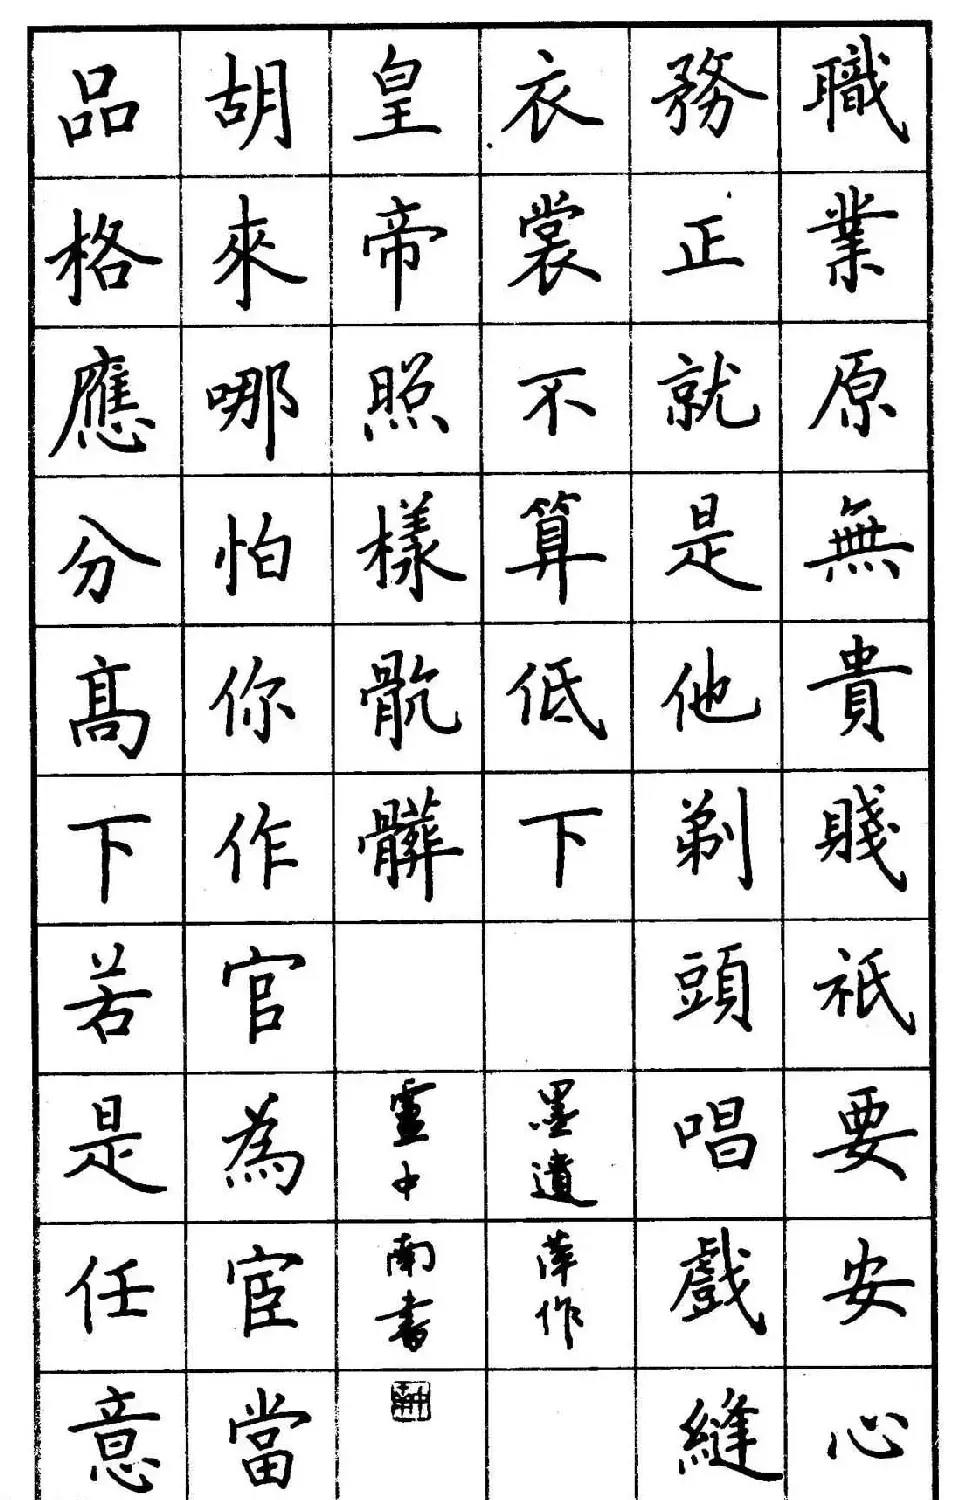 職業原無貴賤祇要安心
務正就是他剃頭唱戲縫
衣裳不算低下
品格應分髙下若是任意
胡來哪怕你作官為宦當
皇帝照樣骯髒
墨遺萍作
盧中南書